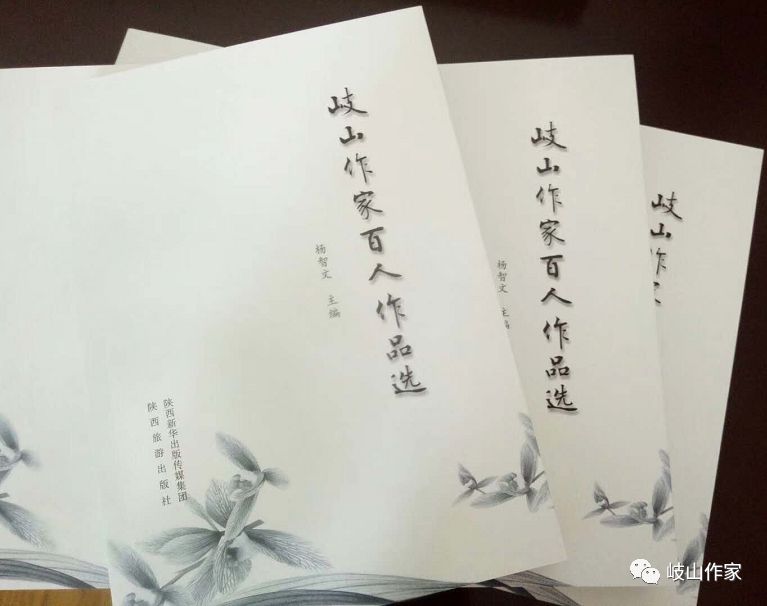 岐山作家百人作品选
杨智文 主编
陕西新华出版传媒集团
陕西旅游出版社
岐山作家百人作品选
杨智文 主编
岐山作家
岐山作家